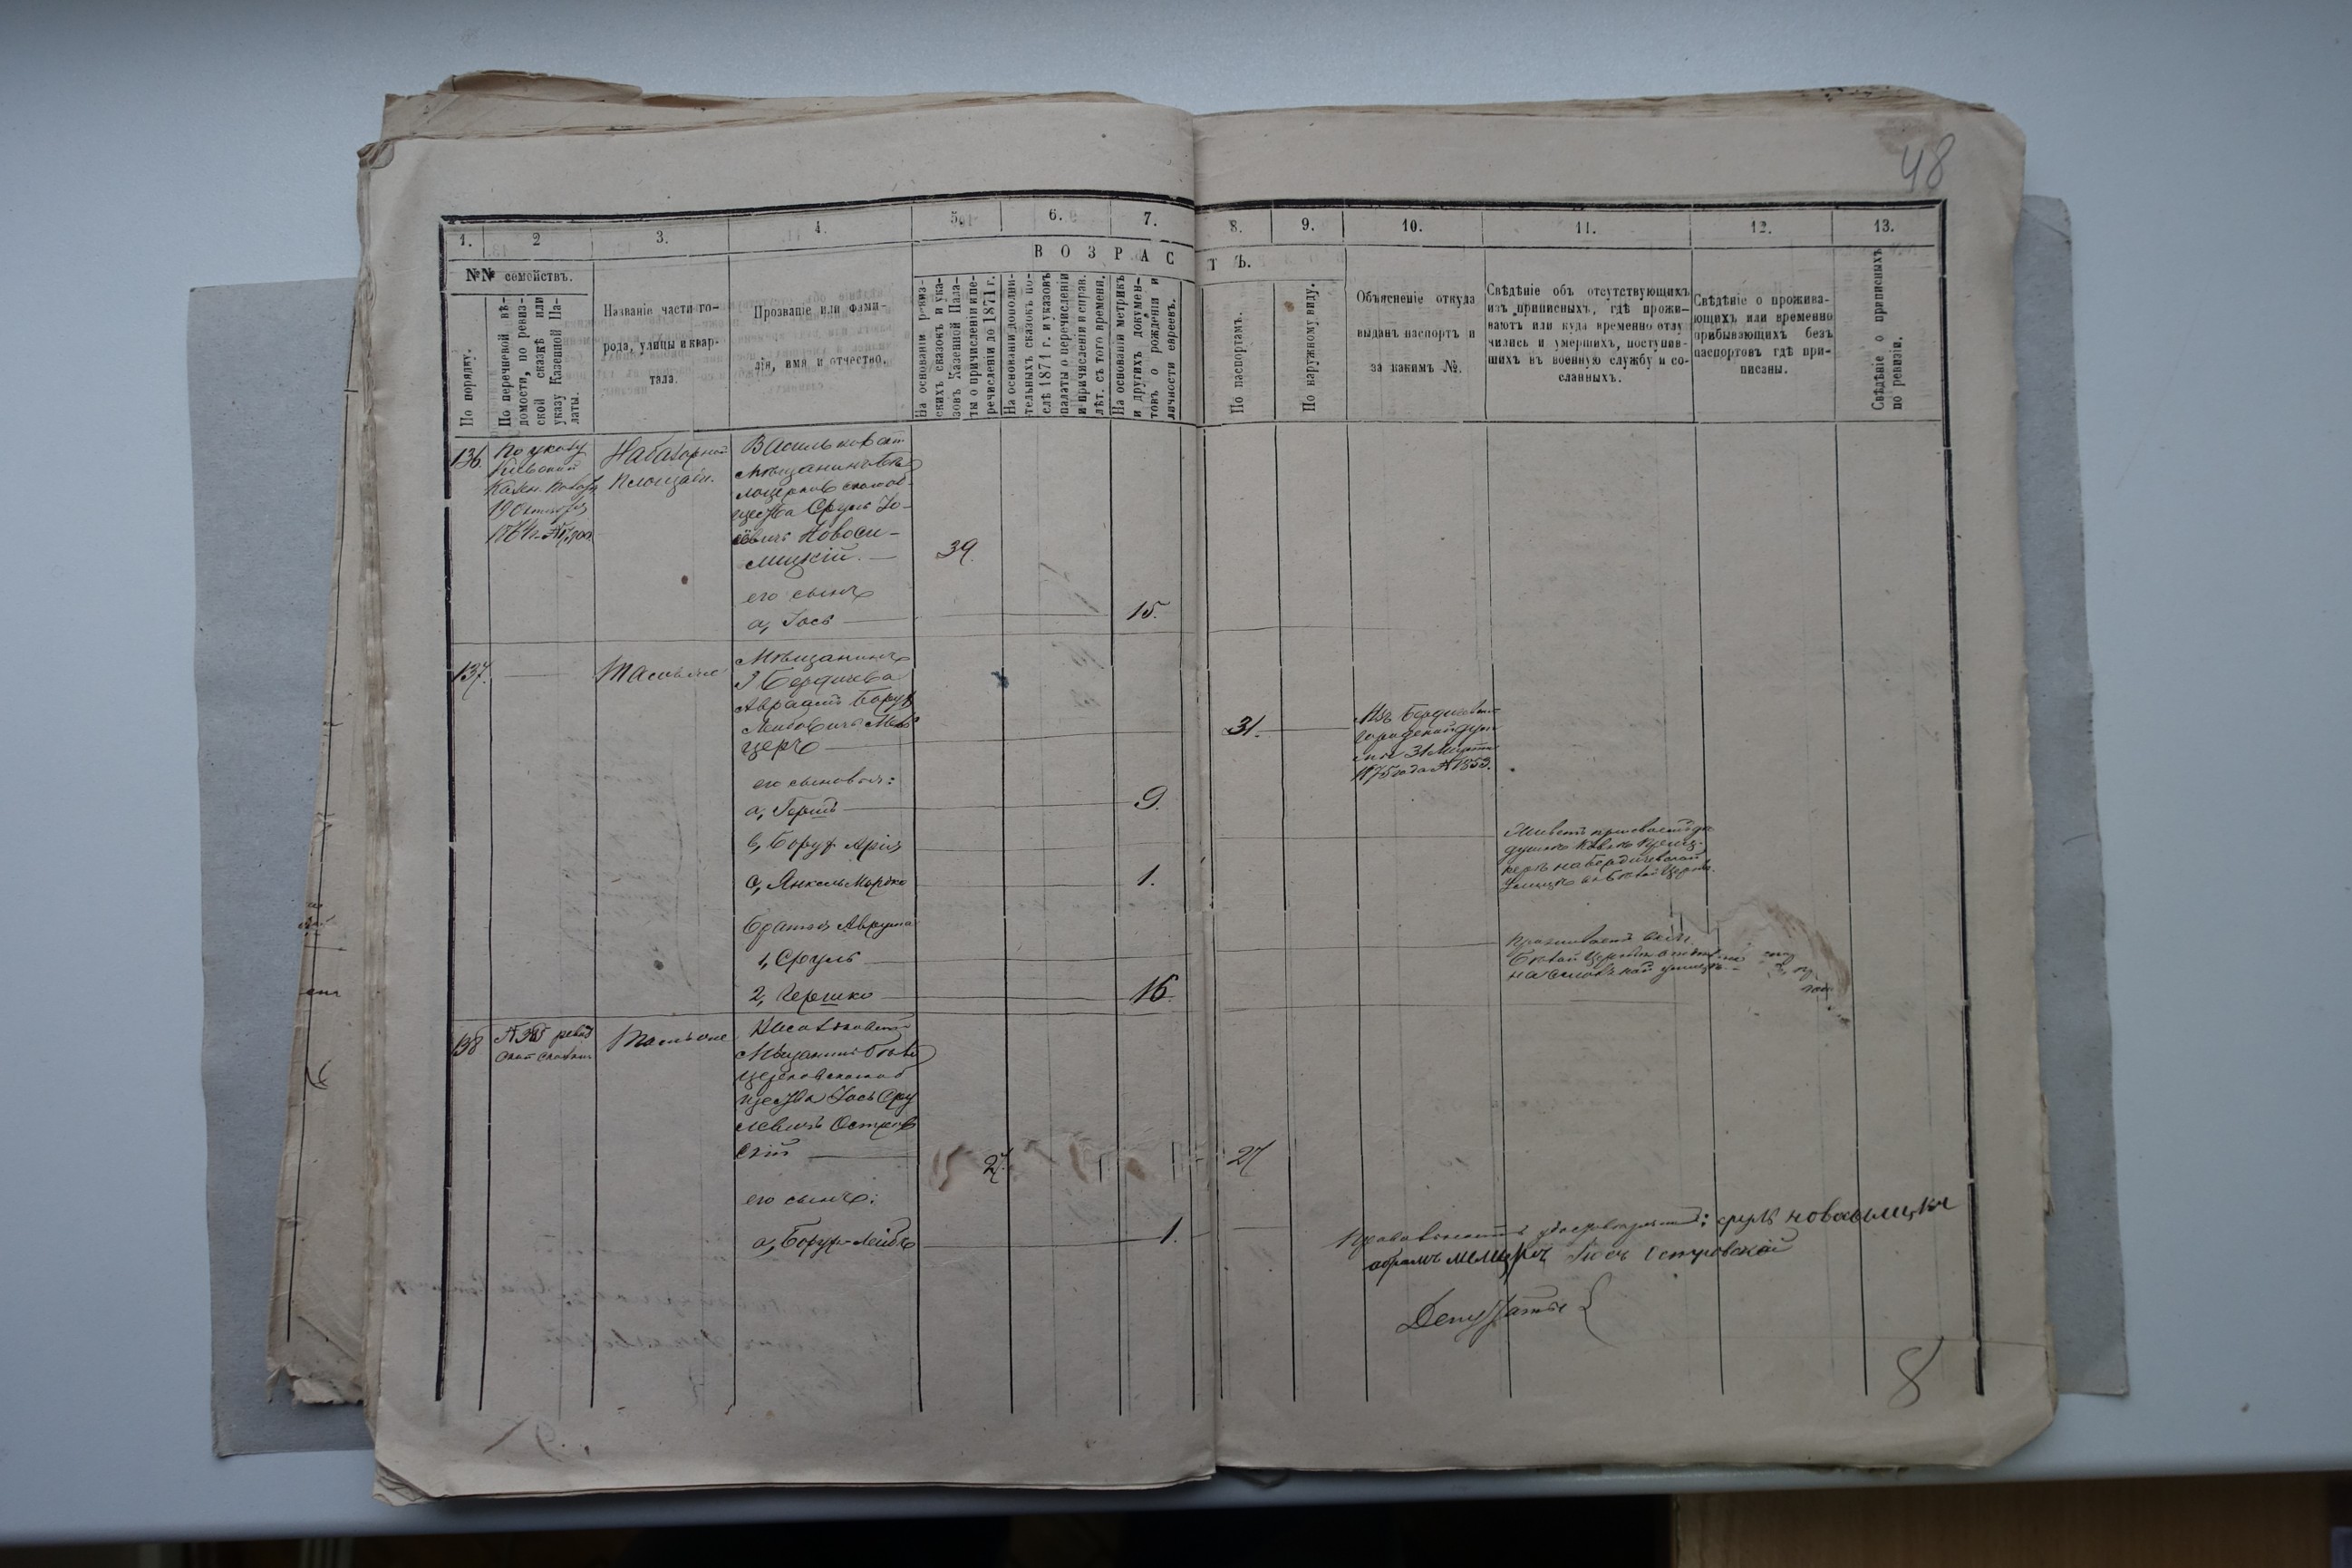 48
1. 2 3. 4. 5. 6. 7. 8. 9. 10. 11. 12. 13.
ВОЗРАСТЪ.
№№ семействъ.
По порядку.
По перечневой вѣ-
домости, по ревиз-
ской сказкѣ или
указу Казенной Па-
латы.
Названіе части го-
рода, улицы и квар-
тала.
Прозваніе или фами-
лія, имя и отчество.
На основаніи ревиз-
скихъ сказокъ и ука-
зовъ Казенной Пала-
ты о причисленіи и пе-
речисленіи до 1871 г.
На основаніи дополни-
тельныхъ сказокъ по-
слѣ 1871 г. и указовъ
палаты о перечисленіи
и причисленіи и справ.
лѣт. съ того времени.
На основаніи метрикъ
и другихъ докумен-
товъ о рожденіи и
личности евреевъ.
По паспортамъ.
По наружному виду.
Объясненіе откуда
выданъ паспортъ и
за какимъ №.
Свѣдѣніе об отсутствующихъ
изъ приписныхъ, гдѣ прожи-
ваютъ или куда временно отлу
чились и умершихъ, поступив-
шихъ въ военную службу и со-
сланныхъ.
Свѣдѣніе о прожива-
ющихъ или временно
прибывающихъ безъ
паспортовъ гдѣ при-
писаны.
Свѣдѣніе о приписныхъ
по ревизіи.
136.
По указу
Кіевской
Казен. Палаты
19 Октября
На базарной
площади.
Васильковскій
мѣщанинъ Бѣло
церковскаго об-
щества Сруль Іо-
севичъ Новоси-
лицкій. 39.
его сынъ
а, Іось 15.
137.
Тамъ же
Мѣщанинъ
г. Бердичева
Авраамъ Борух
Лейбовичъ Мель
церъ 31.
Изъ Бердичевской
городской Думы
31 Марта
1875 года № 1853.
его сыновья:
а, Гершъ 9.
в, Борух Арія
Живетъ при своемъ дѣ
душкѣ
на Бердичевской
улицѣ въ Бѣлой Церкви.
с, Янкель Мордко 1.
братья Авраама
1, Сруль
Проживаетъ въ м.
Бѣлой Церкви
2, Гершко 16.
138
ревиз
ской сказки
Тамъ же
Васильковскій
Мѣщанинъ Бѣло
церковскаго об
щества Іось Сру
левичъ Остров
скій 27. 27
его сынъ:
а, Борух-Лейбъ 1. Сруль Новосилицкій
Абрамъ Мельцеръ Іось Островскій
Депутаты {
8